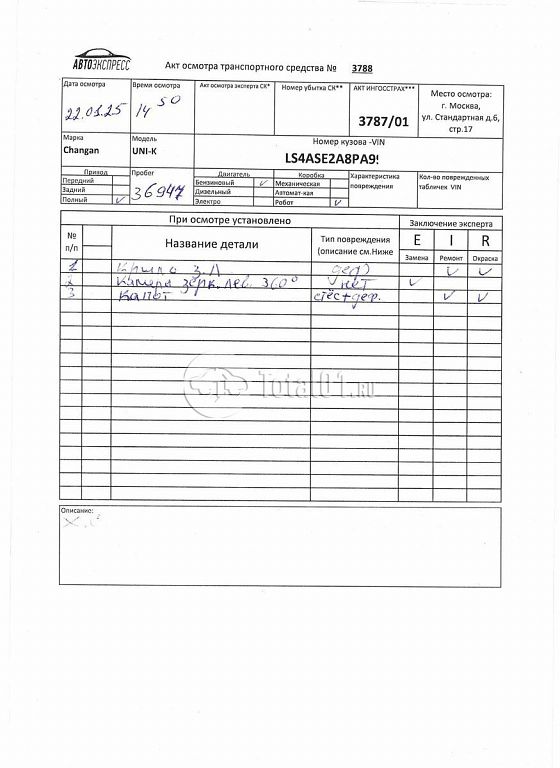 АВТОЭКСПРЕСС
Акт осмотра транспортного средства № 3788
Дата осмотра
22.01.25
Время осмотра
14 50
Акт осмотра эксперта СК*
Номер убытка СК**
АКТ ИНГОССТРАХ***
3787/01
Место осмотра:
г. Москва,
ул. Стандартная д.6,
стр.17
Марка
Changan
Модель
UNI-K
Номер кузова -VIN
LS4ASE2A8PA9
Привод
Передний
Задний
Полный
Пробег
36947
Двигатель
Бензиновый
Дизельный
Электро
Коробка
Механическая
Автомат-кая
Робот
Характеристика
повреждения
Кол-во поврежденных
табличек VIN
При осмотре установлено
Заключение эксперта
№
п/п
Название детали
Тип повреждения
(описание см.Ниже
E I R
Замена Ремонт Окраска
1 Крыло З.Л деф
2 Камера зерк. лев. 360° нет
3 Капот стёс+деф.
Total01.RU
Описание: